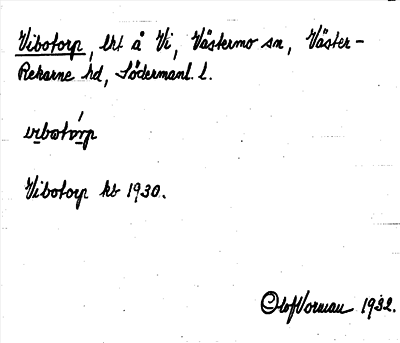 Vibotorp, lht å Vi, Västermo sn, Väster-
Rekarne hd, Södermanl. l.
vibotórp
Vibotorp kb 1930.
Olof Vorman 1932.